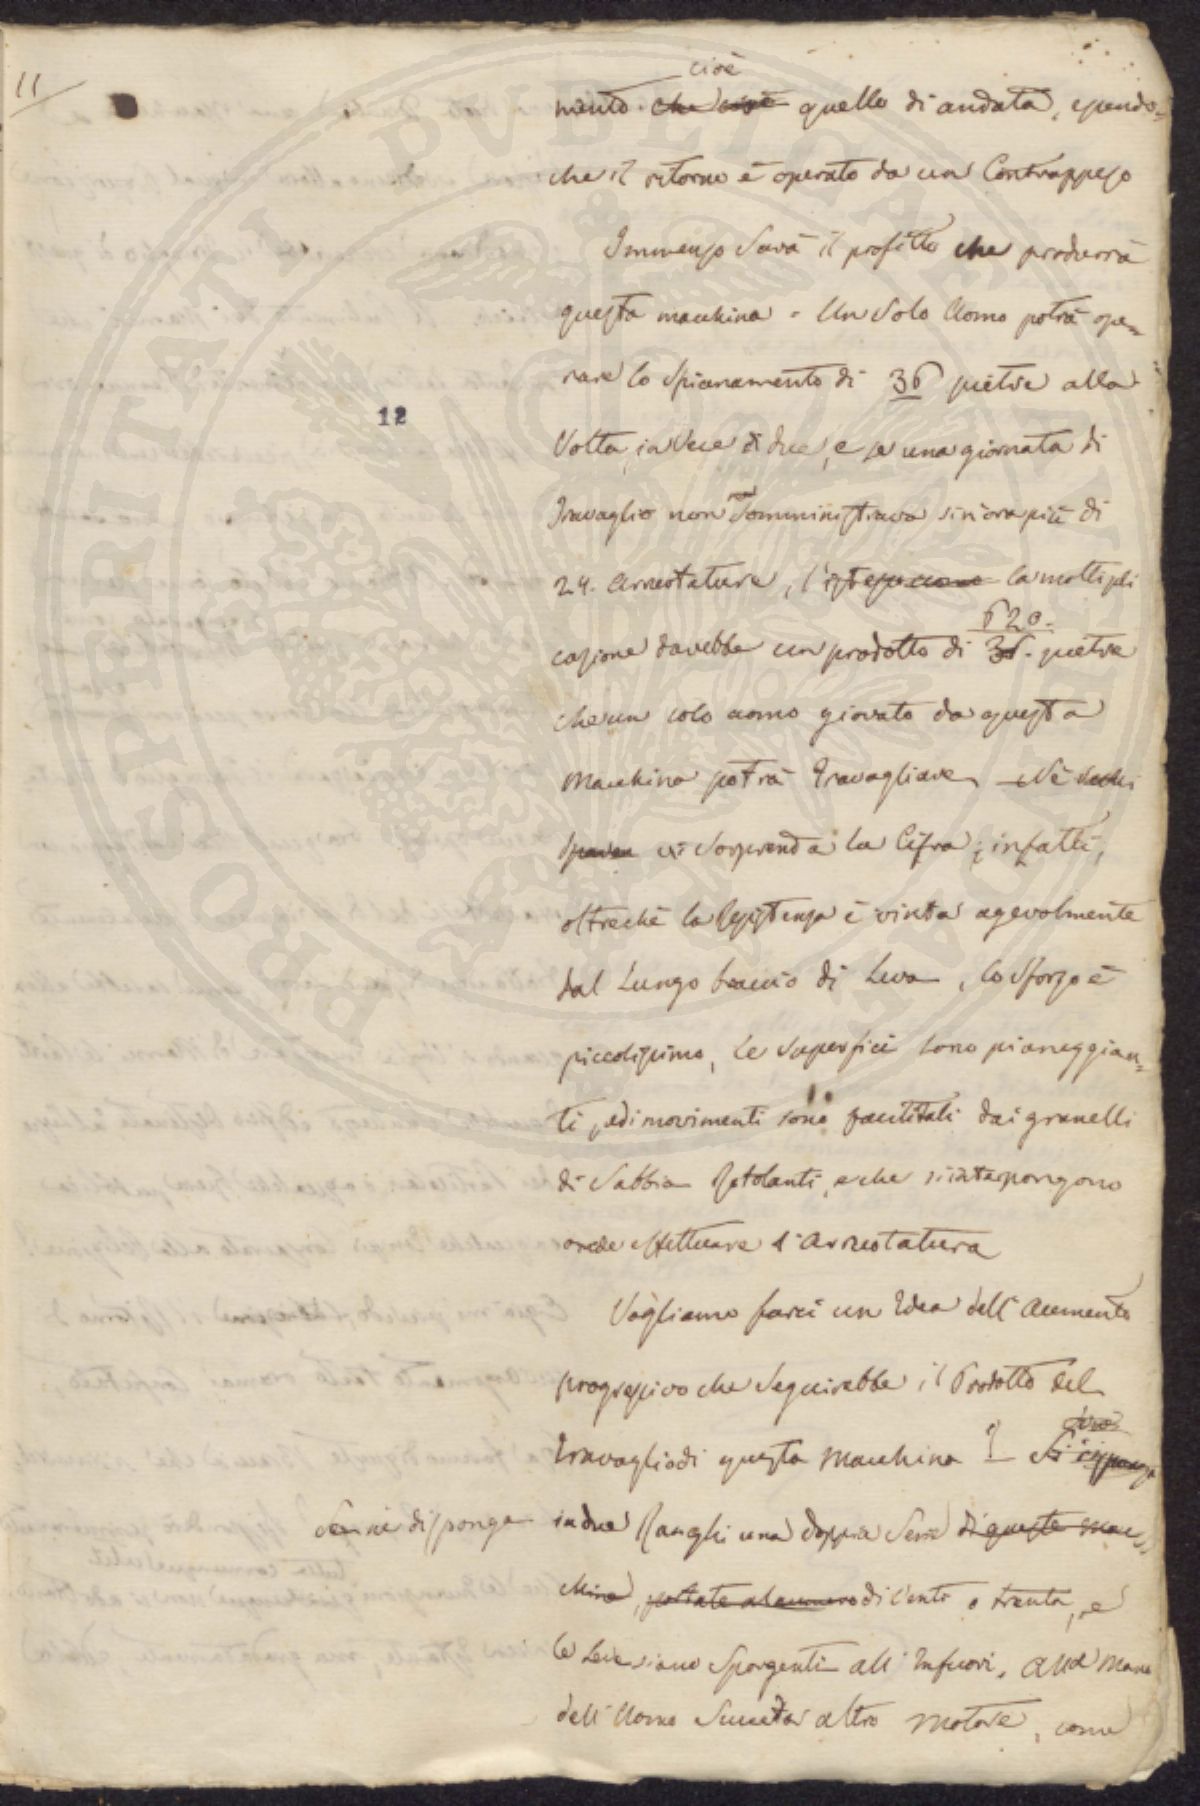 11
cioè
mento che cioè quello di andata, essendo=
che il ritorno è operato da un Contrappeso
Immenso Sarà il profitto che produrrà
questa macchina - Un Solo Uomo potrà ope=
rare lo Spianamento di 36 pietre alla
12
Volta, in Vece di due, e se una giornata di
Travaglio non Somministrava sinora più di
24. arruotature, la moltipli
620.
cazione darebbe un prodotto di 36. pietre
che un solo uomo giovato da questa
Macchina potrà Travagliare Nè
vi Sorprenda la Cifra; infatti,
oltrechè la Resistenza è vinta agevolmente
dal Lungo braccio di Leva, lo Sforzo è
piccolissimo, Le Superfici sono pianeggian=
ti, ed i movimenti sono facilitati dai granelli
di Sabbia Rotolanti, e che s'interpongono
onde effettuare l'Arruotatura
Vogliamo farci un Idea dell'Aumento
progressivo che Seguirebbe il Prodotto del
Travaglio di questa Macchina? Si
Se ne disponga in due Ranghi una doppia Serie di queste mac=
chine, portate al numero di Venti o trenta, e
le Leve siano Sporgenti all'Infuori. Alla Mano
dell'Uomo Succeda altro Motore, come